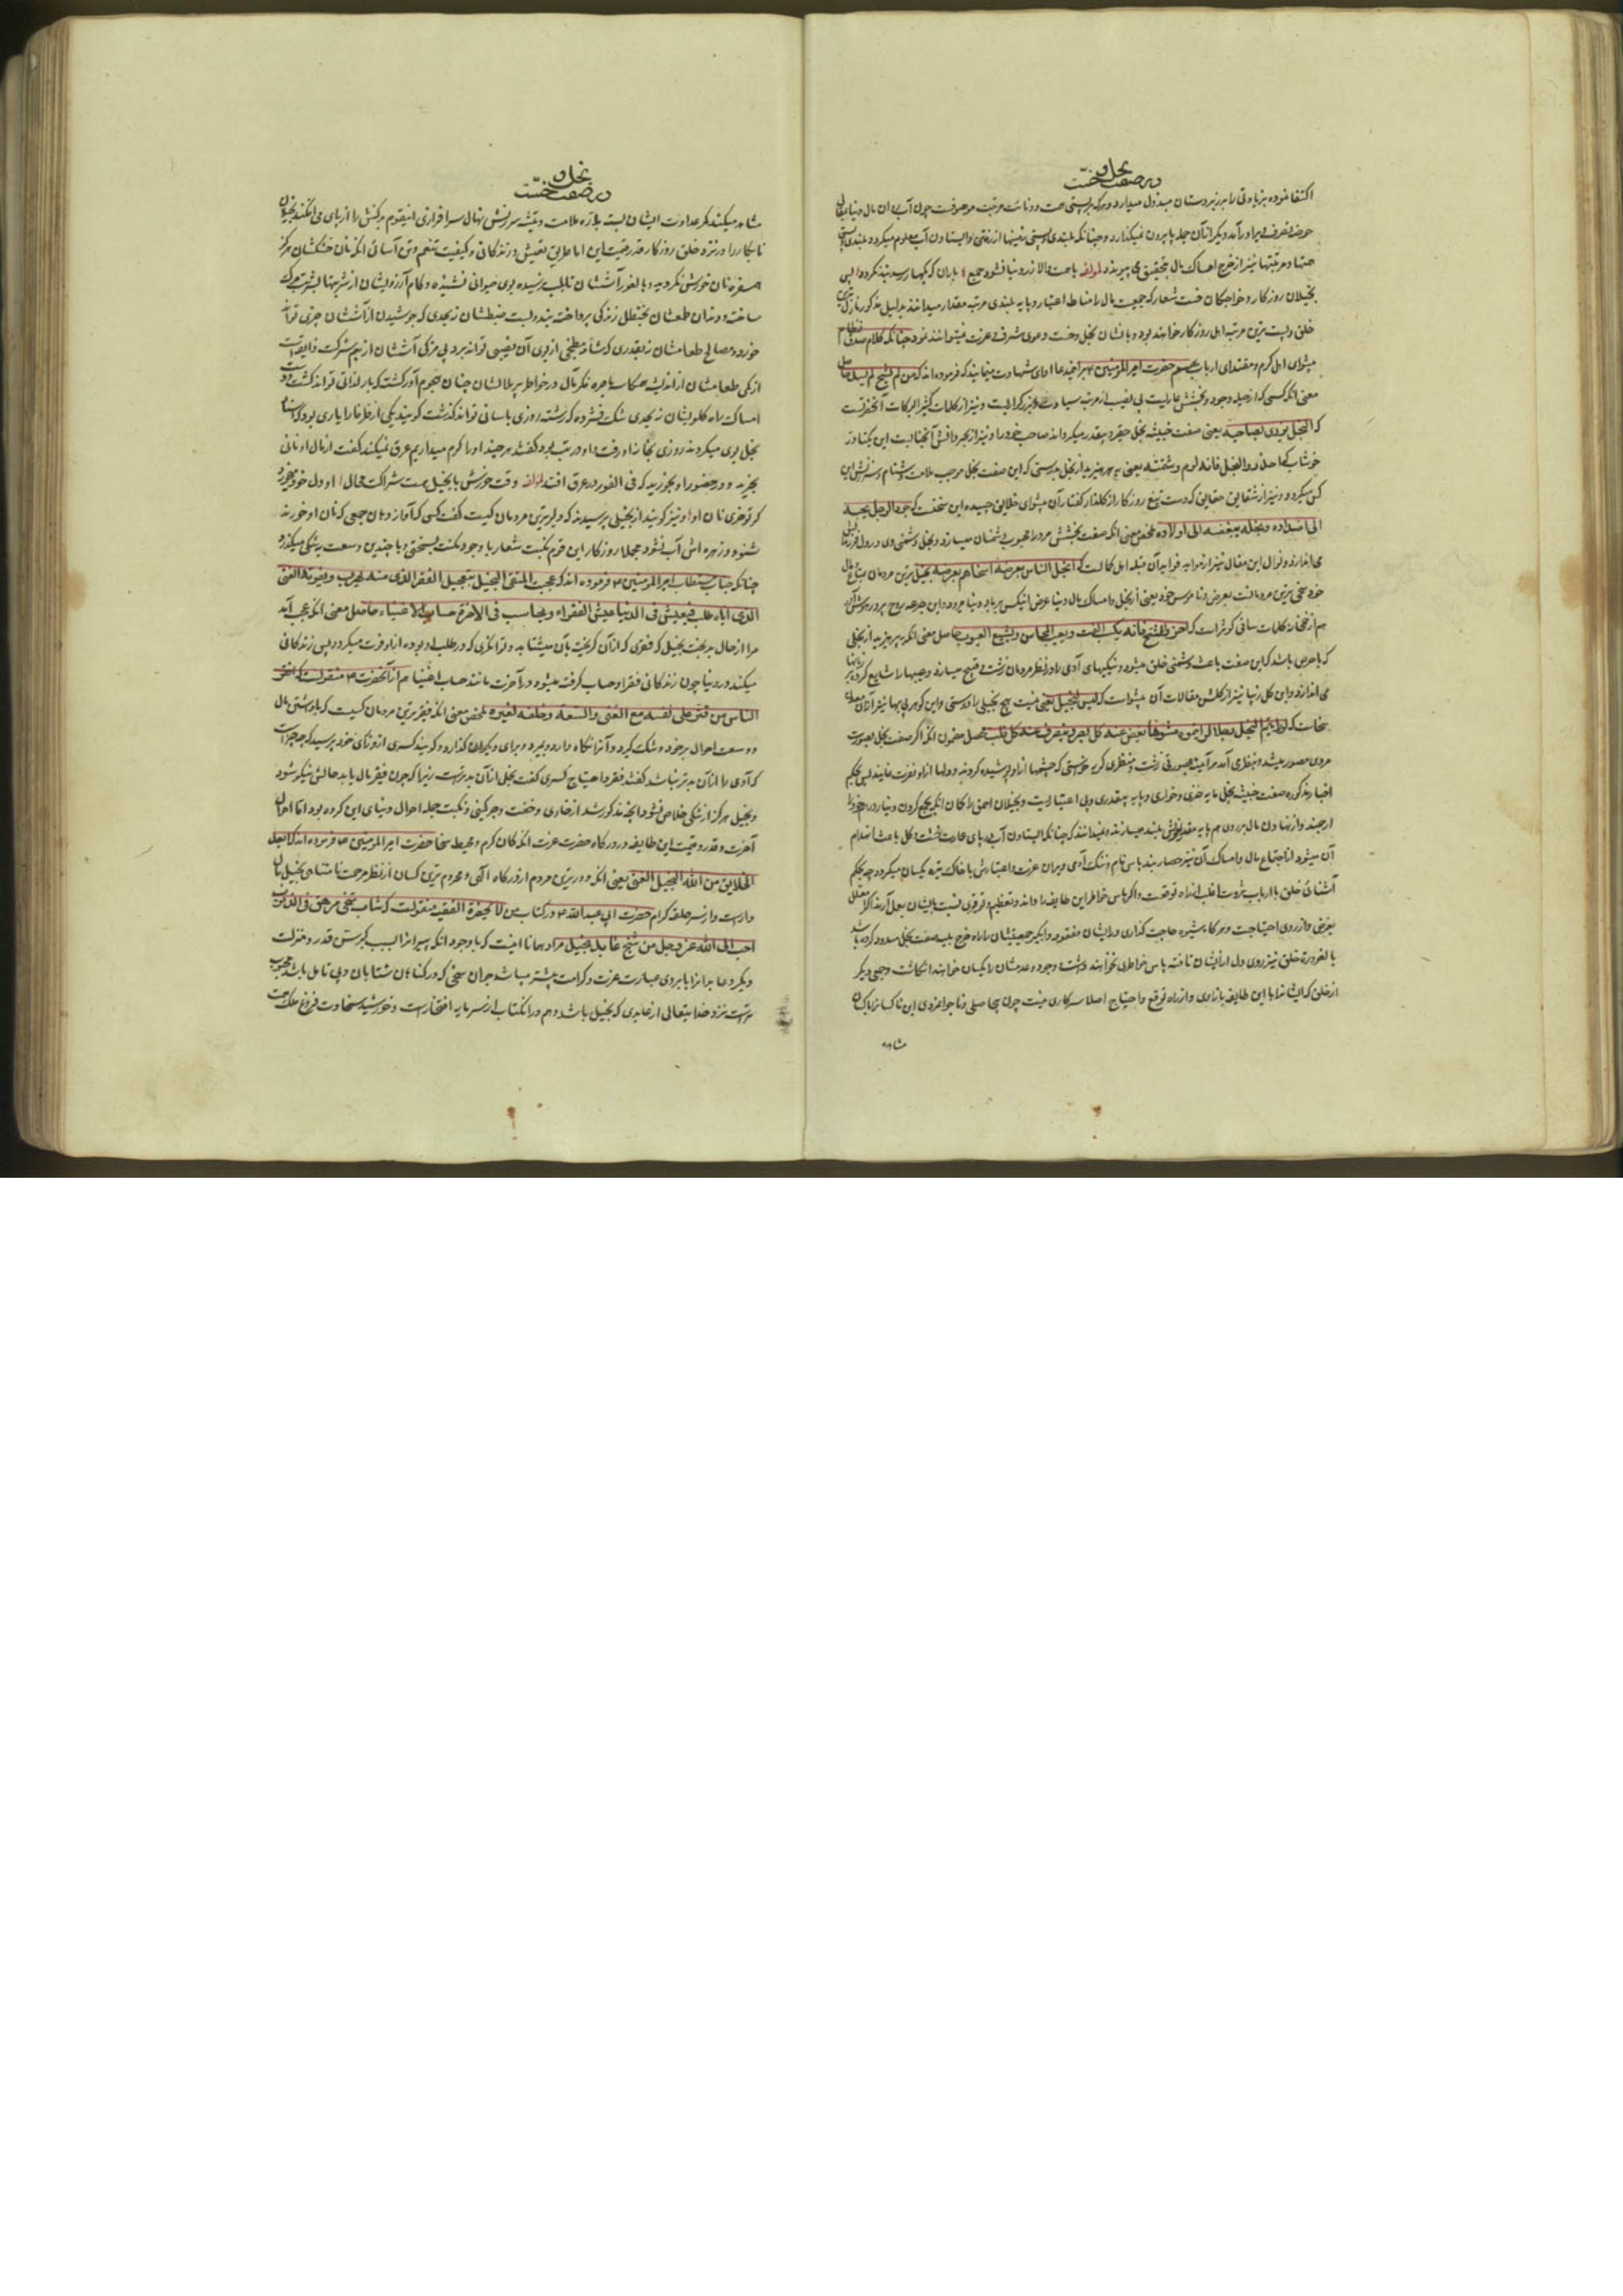 در صفت بخل و خسّت
اکتفا نموده بزیادتی را بر زیردستان مبذول میدارد و هرکه بر پستی همت و دنائت مرتبت موصوفست چون آب از ان مال دنیا
حوض تصرف در آمد دیگر از آن جمله پا بیرون نمیگذارد و چنانکه بلندی و پستی زمینها از رفتن و ایستادن آب معلوم میکردد بلندی و پستی
همتها و مرتبتها نیز از خرج و امساک مال بتحقیق می پیوندد لمؤلفه با همت والا زر و دنیا نشود جمع باران که بکهسار رسد بند نکردد پس
بخیلان روزکار و خواجکان خست شعار که جمعیت مال را مناط اعتبار و پایه بلندی مرتبه و مقدار میدانند بدلیل مذکور نازل ترین
خلق و پست ترین مرتبه اهل روزکار خواهند بود و با نشان بخل و خست دعوی شرف و عزت نمیتوانند نمود چنانکه کلام صدق نظام
پیشوای اهل کرم و مقتدای ارباب همم حضرت امیر المؤمنین ع بر اینمدعا ادای شهادت مینمایند که فرموده اند که من لم یسمح لم یسد حاصل
معنی آنکه کسی که از حلیه وجود و بخشش عاریست بی نصیب از مرتبه سیادت و بزرکواریست و نیز از کلمات کثیر البرکات آنحضرتست
که البخل یزری بصاحبه یعنی صفت خبیثه بخل حقیر و بیقدر میکرداند صاحب خود را و نیز از بحر دانش آنجنابست این یکتا در
خوشاب که احذروا البخل فانه لوم و مشتمة یعنی به پرهیزید از بخل بدرستی که این صفت بخل موجب ملامت و دشنام و سرزنش این
کس میکردد و نیز از شقایق حقایقی که دست تیغ روزکار از کلزار کفتار آن پیشوای خلایق چیده این سخنست که جود الرجل یحببه
الی اضداده و بخله یبغضه الی اولاده ملخص معنی آنکه صفت بخشش مرد را محبوب دشمنان میسازد و بخل دشمنی وی در دل فرزندانش
می اندازد و نوال این مقال نیز از موایه فواید آن قبله اهل کمالست که ابخل الناس بعرضه اسخاهم بعرضه بخیل ترین مردمان بمتاع مال
خود سخی ترین مردمانست بعرض و ناموس خود یعنی از بخل و امساک مال دنیا عرض اینکس بر باد دنیا میرود و این جرعه روح پرور هوش آور
هم از خمخانه کلمات ساقی کوثر است که احذروا الشح فانه یکسب المقت و یعیب المحاسن و یشیع العیوب حاصل معنی آنکه بپرهیزید از بخلی
که با حرص باشد که این صفت باعث دشمنی خلق میشود و نیکیهای آدمی را در نظر مردمان زشت و قبیح میسازد و عیبها را شایع کرده بر زبانها
می اندازد و این کل زیبا نیز از کلشن مقالات آن پیشواست که لیس لبخیل حبیب یعنی نیست هیچ بخیلی را دوستی و این کوهر بی بها نیز از آن معدن
سخاست که لو رأیتم البخل رجلا لرأیتموه مشوها یغض عنه کل بصر و ینصرف عنه کل قلب محصل مضمون آنکه اگر صفت بخل بصورت
مردی مصور میشد و بنظری آمد هر آینه بصورتی زشت و منظری کریه میبود که چشمها از او پوشیده کردند و دلها از او نفرت نمایند پس بحکم
اخبار مذکوره صفت خبیثه بخل مایه خفت و خواری و پایه بیقدری و بی اعتباریست و بخیلان احمق را کمان آنکه بجمع کردن دینار و درهم خود را
ارجمند و از نهادن مال بر روی هم پایه مقدار خویش بلند میسازند و نمیدانند که چنانکه ایستادن آب در پای عمارت خشت و کل باعث انهدام
آن میشود اجتماع مال و امساک آن نیز حصار بند پاس نام و ننک آدمی ویران عزت و اعتبارش با خاک تیره یکسان میکردد چه بحکم
آشنائی خلق با ارباب ثروت اغلب از راه توقعست و اگر پاس خواطر این طایفه را دارند و تعظیم و توقری نسبت بایشان بعمل آرند اکثر معلل
بغرض و از روی احتیاجست و هر کاه شیوه حاجت کذاری در ایشان مفقود و آبکیر جمعیتشان را راه خرج بسبب صفت بخل مسدود کردیده باشد
بالضرورة خلق نیز روی دل از ایشان تافته پاس خواطری نخواهند داشت و وجود و عدمشان را یکسان خواهند انکاشت و جمعی دیکر
از خلق که ایشان را با این طایفه بازاری و از راه توقع و احتیاج اصلا سر کاری نیست چون بیحاصلی و ناجوانمردی این ناکسان را بکسان
مشاهده
در صفت بخل و خسّت
مشاهده میکنند کمر عداوت ایشان بسته باره ملامت و تیشه سرزنش نهال سرافرازی اینقوم سرکش را از پای می افکنند
نابکار را در نزد خلق روزکار قدر و قیمت این اما طریق تعیش و زندکانی و کیفیت تنعم و تن آسانی آنکه نان خشکشان هرکز
سفره نان خورش نکردیده و بالفور آششان تا بلب نرسیده بوی حیوانی نشنیده و کام آرزویشان از شربتها بشربت مرک
ساخته و دندان طمعشان بحنظل زندکی پرداخته بند و بست ضبطشان نه بحدی که جوشیدن از آششان چیزی تواند
خورد و مصالح طعامشان نه بقدری که مشام مطبخی از بوی آن نصیبی تواند برد بی مزکی آششان از بیم شرکت ذایقه است
از کمی طعامشان از اندیشه همکاسه باجره فکر مال در خواطر پر ملالشان چنان هجوم آور کشته که یاد لذاتی تواند کشت و
امساک راه کلویشان نه بحدی تنک فشرده که رشته روزی باسانی تواند کذشت کویند یکی از ظرفا را یاری بود که بسیار
بخل بوی میکردند روزی بخانه او رفت و او در تب بود کفتند هر چند او را کرم میداریم عرق نمیکند کفت از مال او نانی
بخرید و در حضور او بخورید که فی الفور در عرق افتد لمؤلفه وقت خورش با بخیل هست شراکت محال
کر تو خوری نان او او نیز کویند از بخیلی پرسیدند که دلیرترین مردمان کیست کفت کسی که آواز دهان جمعی که نان او خورند
شنود و زهره اش آب نشود مجملا روزکار این قوم نکبت شعار با وجود مکنت بسختی و با چندین وسعت بتنکی میکذرد
چنانکه جناب مستطاب امیر المؤمنین ع فرموده اند که عجبت للشقی البخیل یتعجل الفقر الذی منه هرب و یفوته الغنی
الذی ایاه طلب فیعیش فی الدنیا عیش الفقراء و یحاسب فی الاخرة حساب الاغنیاء حاصل معنی آنکه عجب آید
مرا از حال بدبخت بخیل که فقری که از آن کریخته بآن میشتابد و توانکری که در طلب او بوده از او فوت میکردد پس زندکانی
میکند در دنیا چون زندکانی فقرا و حساب کرفته میشود در آخرت مانند حساب اغنیا هم از آنحضرت ع منقولست که افقر
الناس من قتر علی نفسه مع الغنی و السعة و خلفه لغیره ملخص معنی آنکه فقیرترین مردمان کسیست که با داشتن مال
و وسعت احوال بر خود تنک کیرد و آنرا نکاه دارد و بمیرد و برای دیکران کذارد و کویند کسری از دانای خود پرسید که چه چیز است
که آدمی را از آن بدتر نباشد کفتند فقر و احتیاج کسری کفت بخل از آن بدتر است زیرا که چون فقیر مال یابد حالش نیکو شود
و بخیل هرکز از تنکی خلاص نشود و آنچه مذکور شد از خواری و خفت و چرکینی و نکبت جمله احوال دنیای این کروه بود اما احوال
آخرت و قدر و قیمت این طایفه در درکاه حضرت عزت آنکه کان کرم و محیط سخا حضرت امیر المؤمنین ع فرموده اند که ابعد
الخلایق من الله البخیل الغنی یعنی آنکه دورترین مردم از درکاه آلهی و محروم ترین کسان از نظر مرحمت نامتناهی بخیل
داراست و از سر حلقه کرام حضرت ابی عبد الله ع در کتاب من لا یحضره الفقیه منقولست که شاب سخی مرهق فی الذنوب
احب الی الله عز و جل من شیخ عابد بخیل مراد همانا اینست که با وجود آنکه پیران را بسبب کبر سن قدر و منزلت
دیکر و عابدانرا بابروی عبادت عزت و کرامت بیشتر میباشد جوان سخی که در کناهان شتابان و بی تامل باشد محبوب
تر است نزد خدایتعالی از عابدی که بخیل باشد و هم در آنکتاب از سرمایه افتخار است و خورشید سخاوت فروغ ملک همت